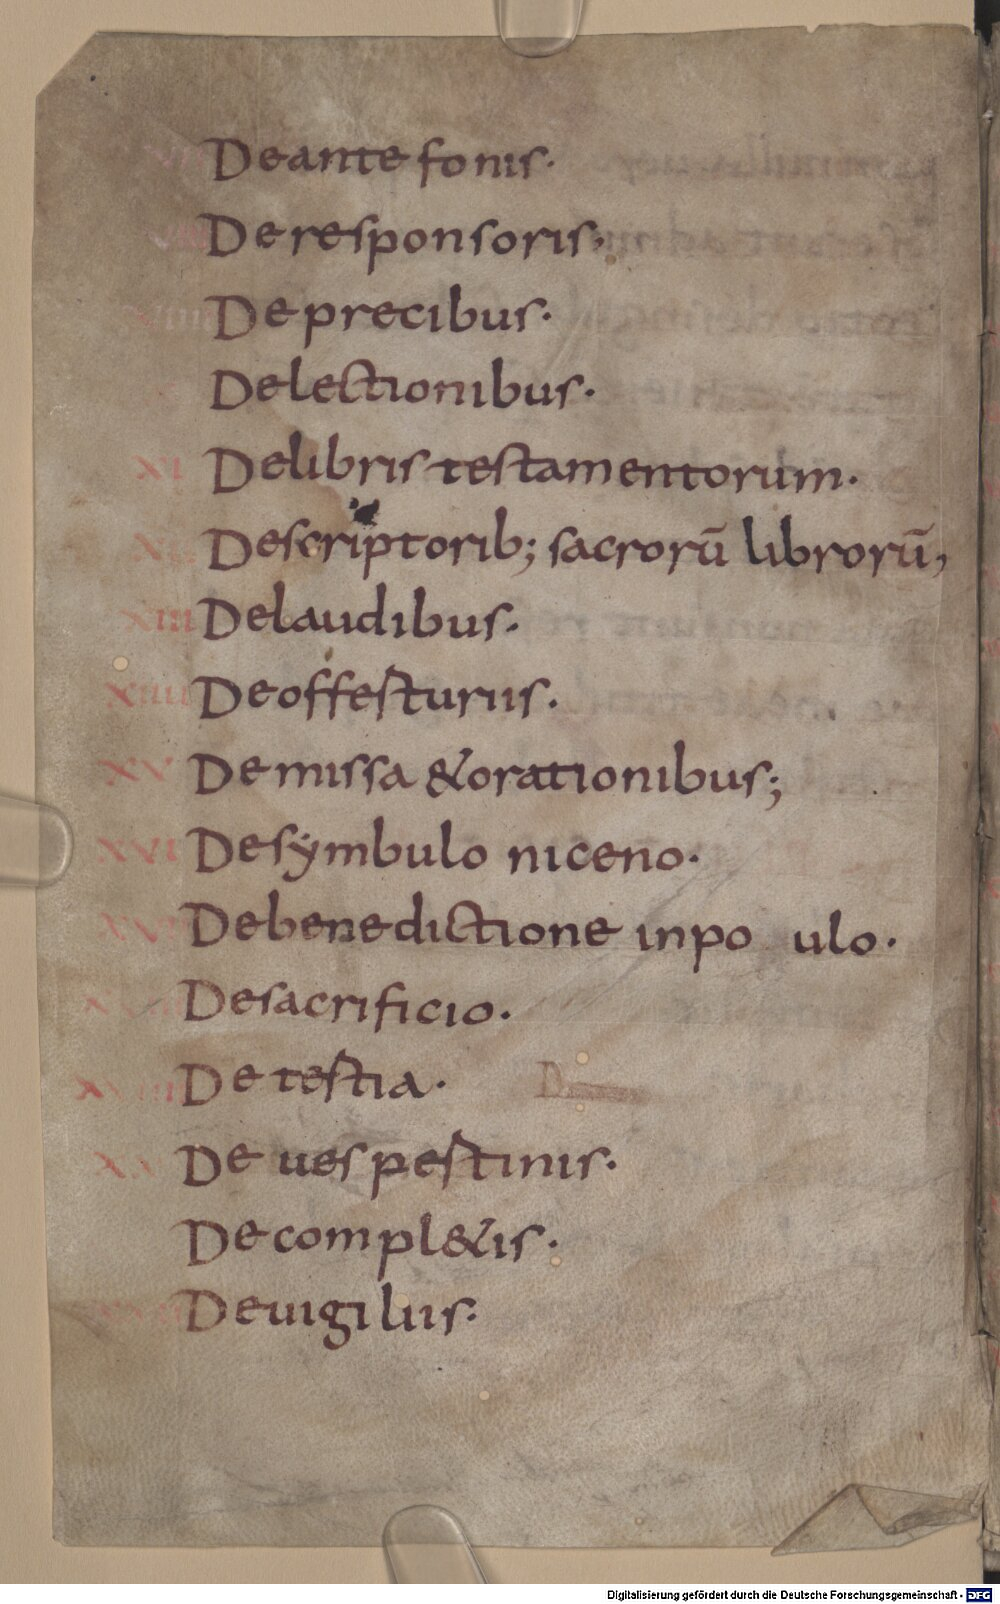 De antefonis.
De responsoris,
De precibus.
De lectionibus.
XI De libris testamentorum.
De scriptorib; sacrorū librorū,
XIII De laudibus.
XIIII De offesturiis.
XV De missa & orationibus;
XVI De sẏmbulo niceno.
De benedictione in po ulo.
De sacrificio.
De testia.
XX De uespestinis.
De compl&is.
De uigiliis.
Digitalisierung gefördert durch die Deutsche Forschungsgemeinschaft - DFG